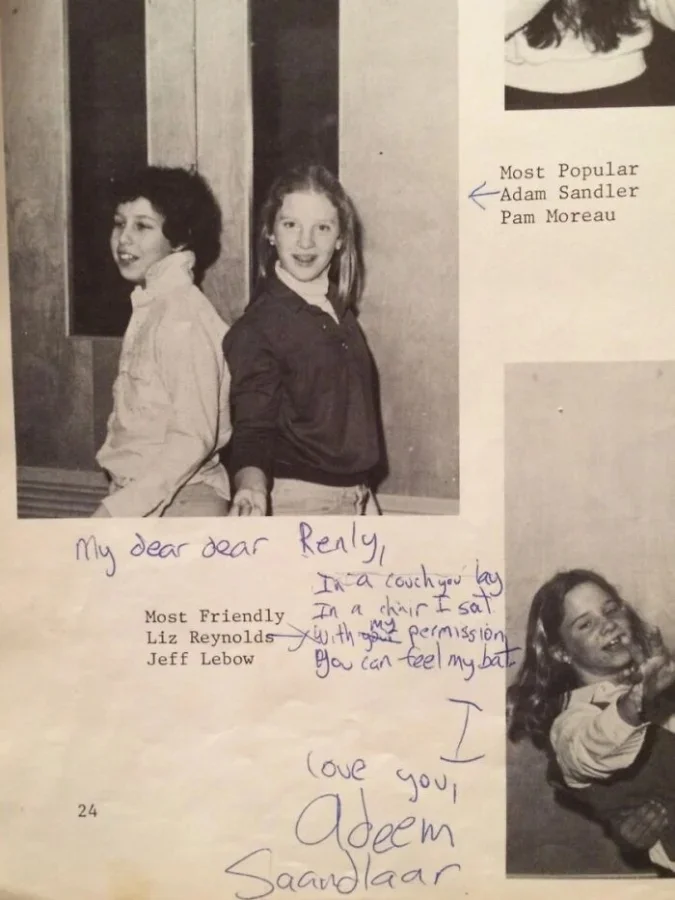 Most Popular
Adam Sandler
Pam Moreau
My dear dear Renly,
In a couch you lay
In a chair I sat
Most Friendly
Liz Reynolds
Jeff Lebow
with your my permission
you can feel my bat
I
love you,
Adeem
Saandlaar
24